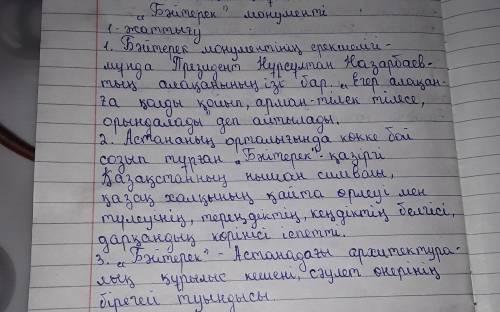 „Бәйтерек" монументі
1-жаттығу
1. Бәйтерек монументінің ерекшелігі-
мұнда Президент Нұрсұлтан Назарбаев-
тың алақанының ізі бар. „Егер алақан-
ға қолды қойып, арман-тілек тілесе,
орындалады" деп айтылады.
2. Астананың орталығында көкке бой
созып тұрған „Бәйтерек"- қазіргі
Қазақстанның нышан символы,
қазақ халқының қайта өрлеуі мен
түлеуінің, тереңдіктің, кеңдіктің белгісі,
дарқандық көрінісі іспетті.
3. „Бәйтерек" - Астанадағы архитектура-
лық құрылыс кешені, сәулет өнерінің
бірегей туындысы.